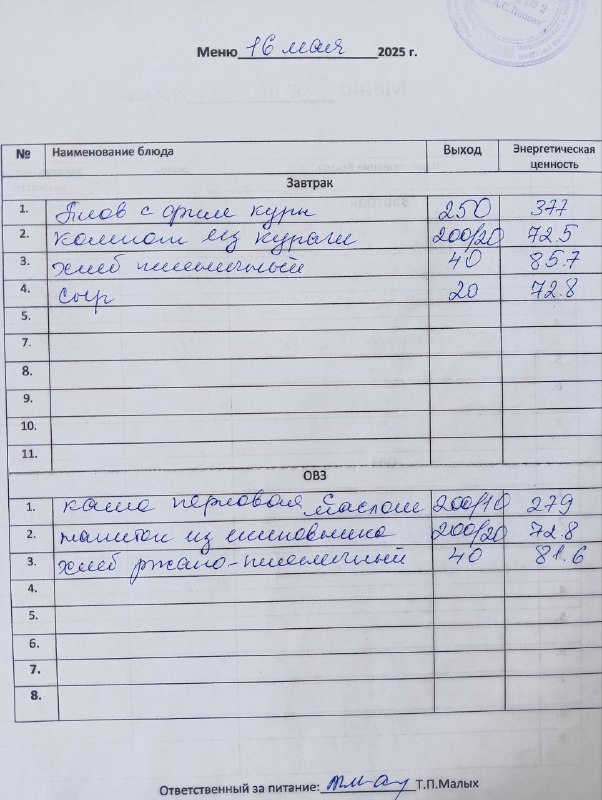 № 2
А.С. Попова"
Меню 16 мая 2025 г.
№ Наименование блюда Выход Энергетическая ценность
Завтрак
1. Плов с филе куры 250 377
2. Компот из кураги 200/20 72.5
3. хлеб пшеничный 40 85.7
4. Сыр 20 72.8
5.
7.
8.
9.
10.
11.
ОВЗ
1. каша перловая маслом 200/10 279
2. напиток из шиповника 200/20 72.8
3. хлеб ржано-пшеничный 40 81.6
4.
5.
6.
7.
8.
Ответственный за питание: Т.П.Малых